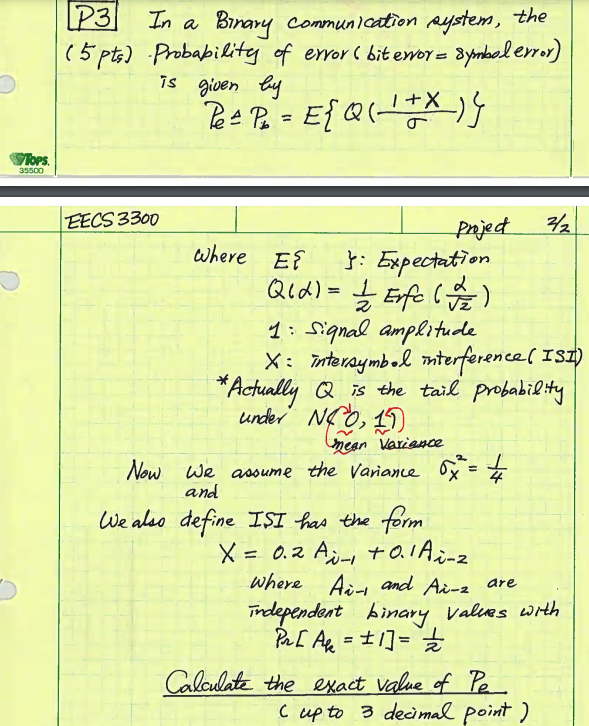 P3 In a Binary communication system, the
(5 pts) Probability of error (bit error = symbol error)
is given by
Pe ≜ Pb = E{ Q( (1+X)/σ ) }
TOPS
35500
EECS3300 Project 2/2
where E{ }: Expectation
Q(α) = 1/2 Erfc ( α/√2 )
1: signal amplitude
X: intersymbol interference (ISI)
*Actually Q is the tail probability
under N(0, 1)
mean Variance
Now we assume the Variance σx² = 1/4
and
We also define ISI has the form
X = 0.2 Ai-1 + 0.1 Ai-2
where Ai-1 and Ai-2 are
independent binary values with
Pr[ Ak = ±1 ] = 1/2
Calculate the exact value of Pe
( up to 3 decimal point )